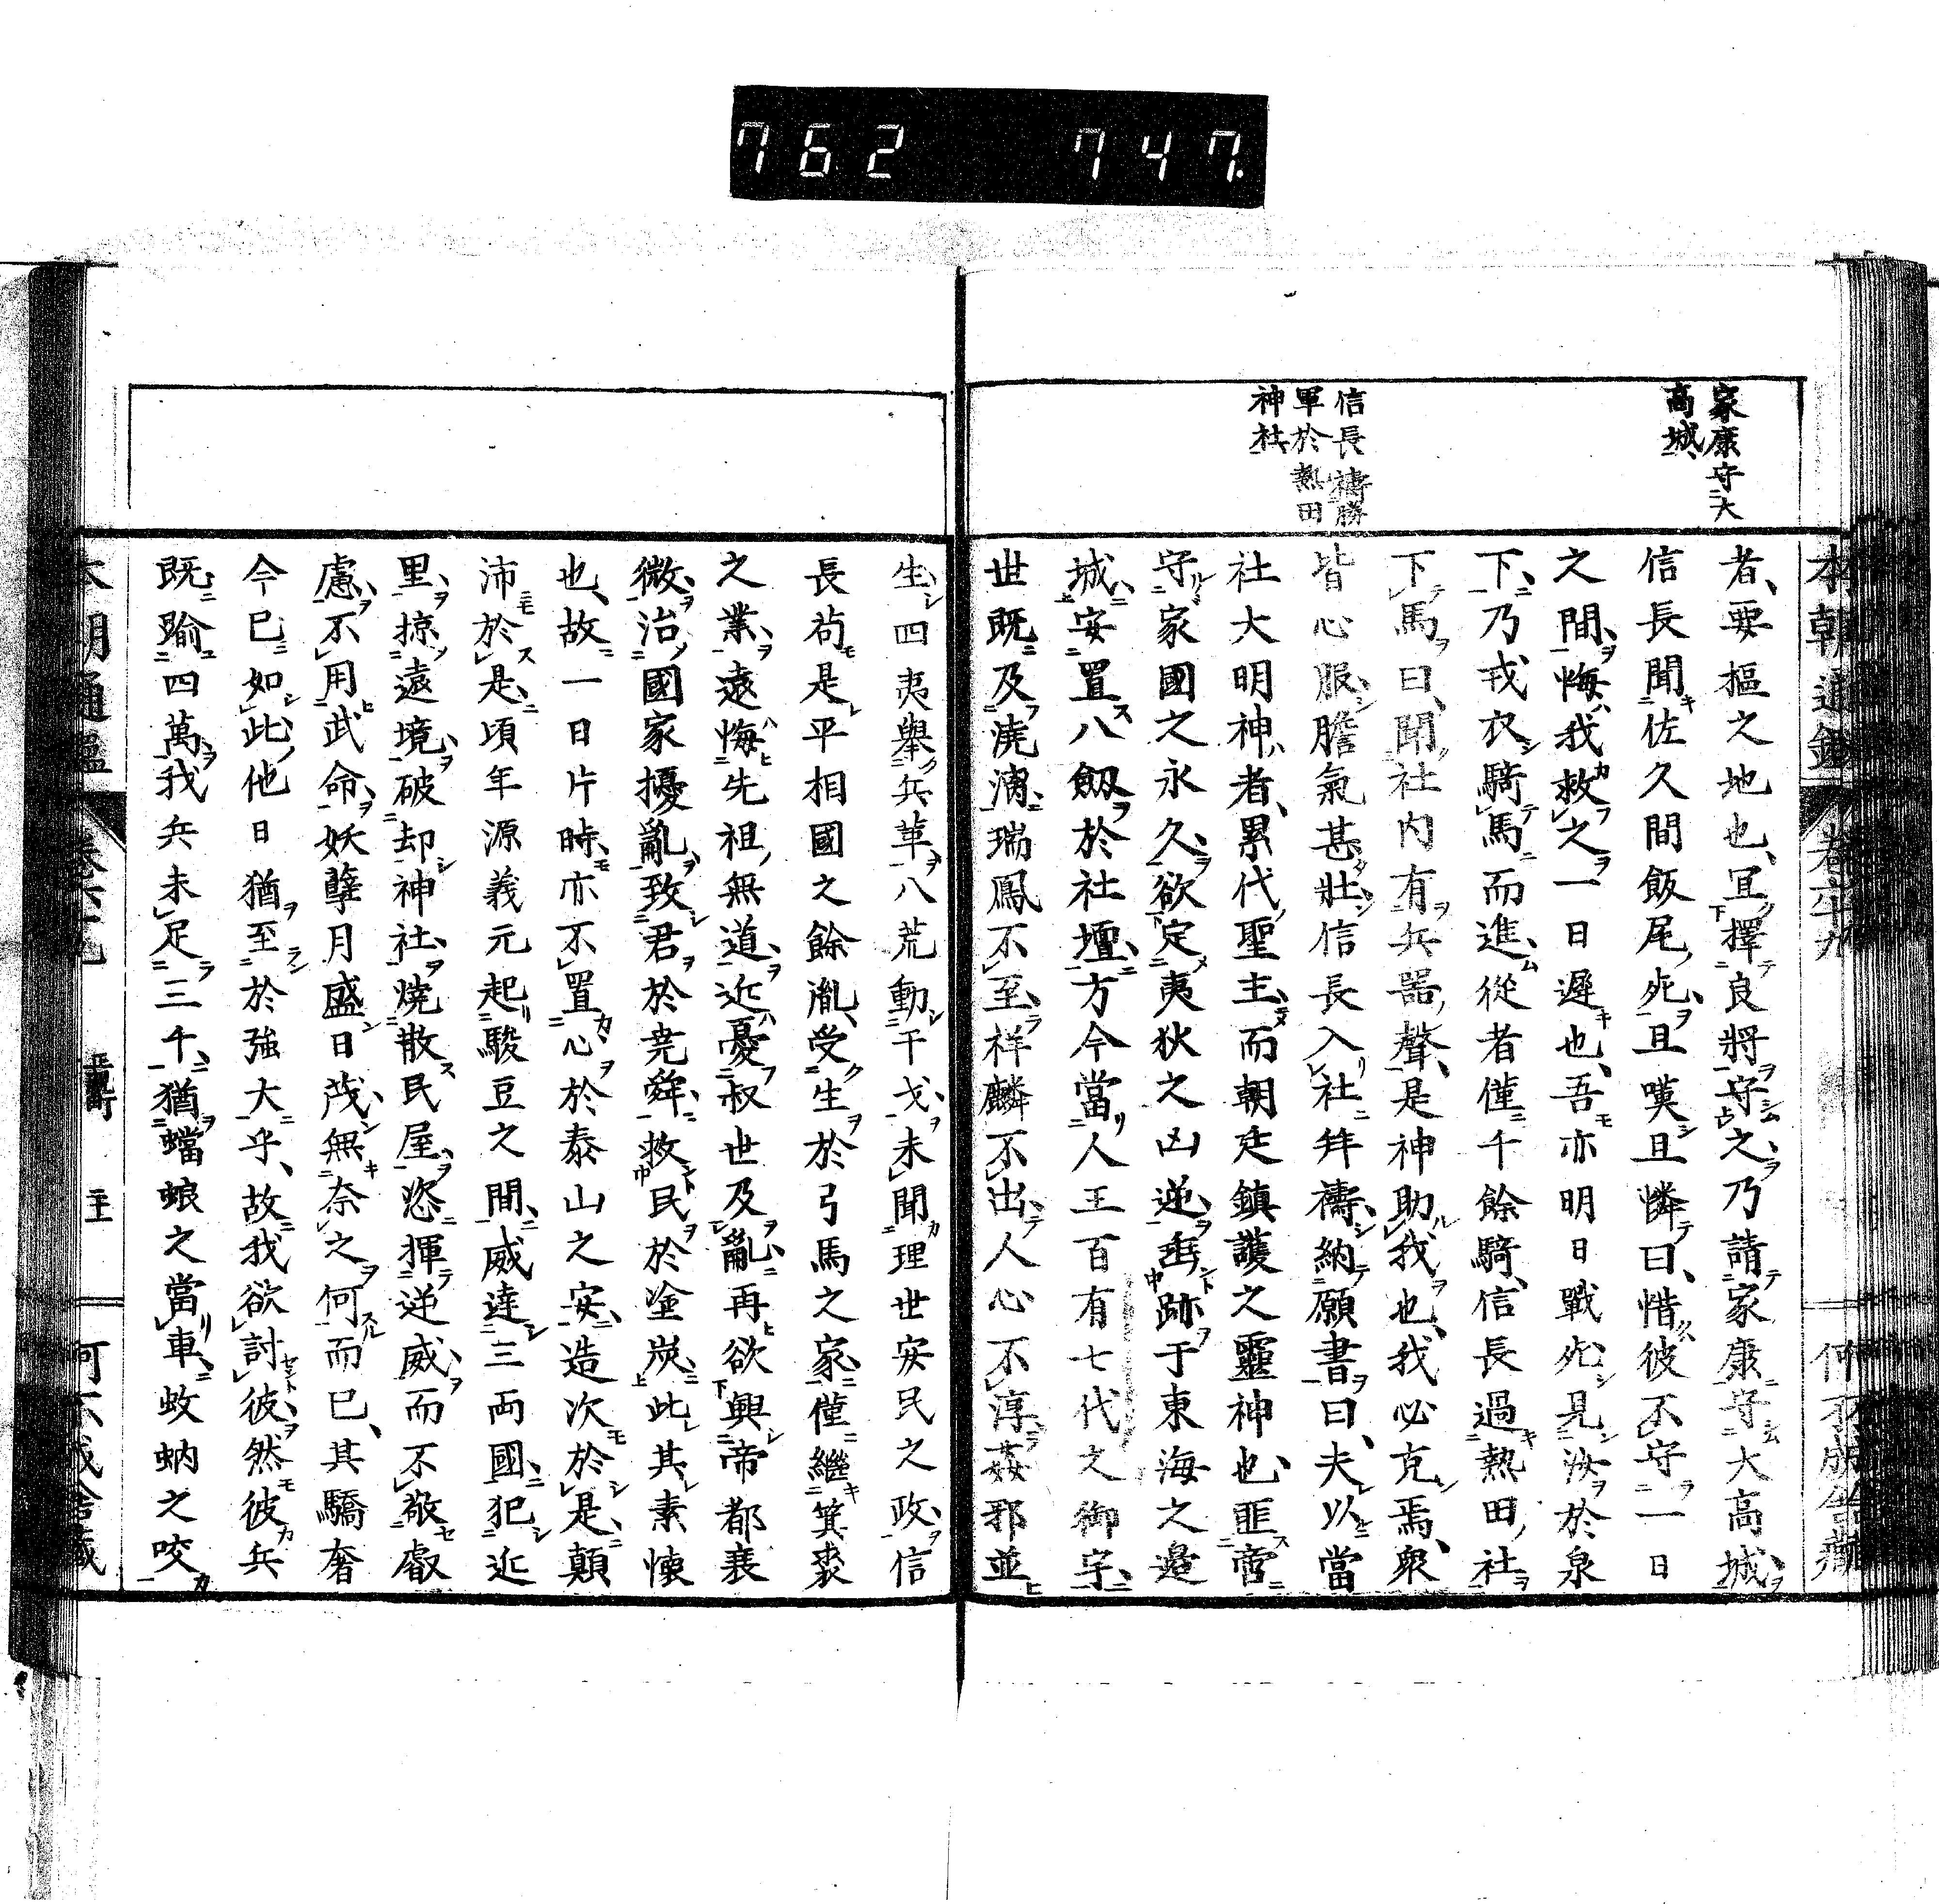 762 747
家康守大
高城
信長禱勝
軍於熱田
神社
者要樞之地也宜擇良將守之乃請家康守大高城
信長聞佐久間飯尾死且嘆且憐曰惜彼不守一日
之間悔我救之一日遲也吾亦明日戰死見汝於泉
下乃戎衣騎馬而進從者僅千餘騎信長過熱田社
下馬曰聞社內有兵器聲是神助我也我必克焉衆
皆心服膽氣甚壯信長入社拜禱納願書曰夫以當
社大明神者累代聖主而朝廷鎮護之靈神也匪啻
守家國之永久欲定夷狄之凶逆垂跡于東海之邊
城安置八劔於社壇方今當人王百有七代之御宇
世既及澆漓瑞鳳不至祥麟不出人心不淳姦邪並
生四夷舉兵革八荒動干戈未聞理世安民之政信
長苟是平相國之餘胤受生於弓馬之家僅繼箕裘
之業遠悔先祖無道近憂叔世及亂再欲興帝都衰
微治國家擾亂致君於堯舜救民於塗炭此其素懷
也故一日片時亦不置心於泰山之安造次於是顛
沛於是頃年源義元起駿豆之間威達三兩國犯近
里掠遠境破却神社燒散民屋恣揮逆威而不敬叡
慮不用武命妖孽月盛日茂無奈之何而已其驕奢
今已如此他日猶至於強大乎故我欲討彼然彼兵
既踰四萬我兵未足三千猶蟷蜋之當車蚊蚋之咬
本朝通鑑 卷六十九